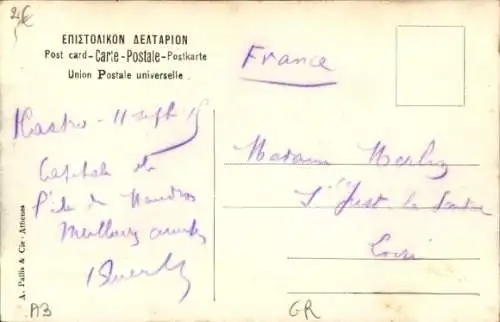 2€
ΕΠΙΣΤΟΛΙΚΟΝ ΔΕΛΤΑΡΙΟΝ
Post card - Carte - Postale - Postkarte
Union Postale universelle
France
Kastro - 11 sept 15
Capitale de
l'île de Moudros
Meilleures amitiés
Madame Merley
St Just
Loire
A. Pallis & Cie - Athènes
AB
GR